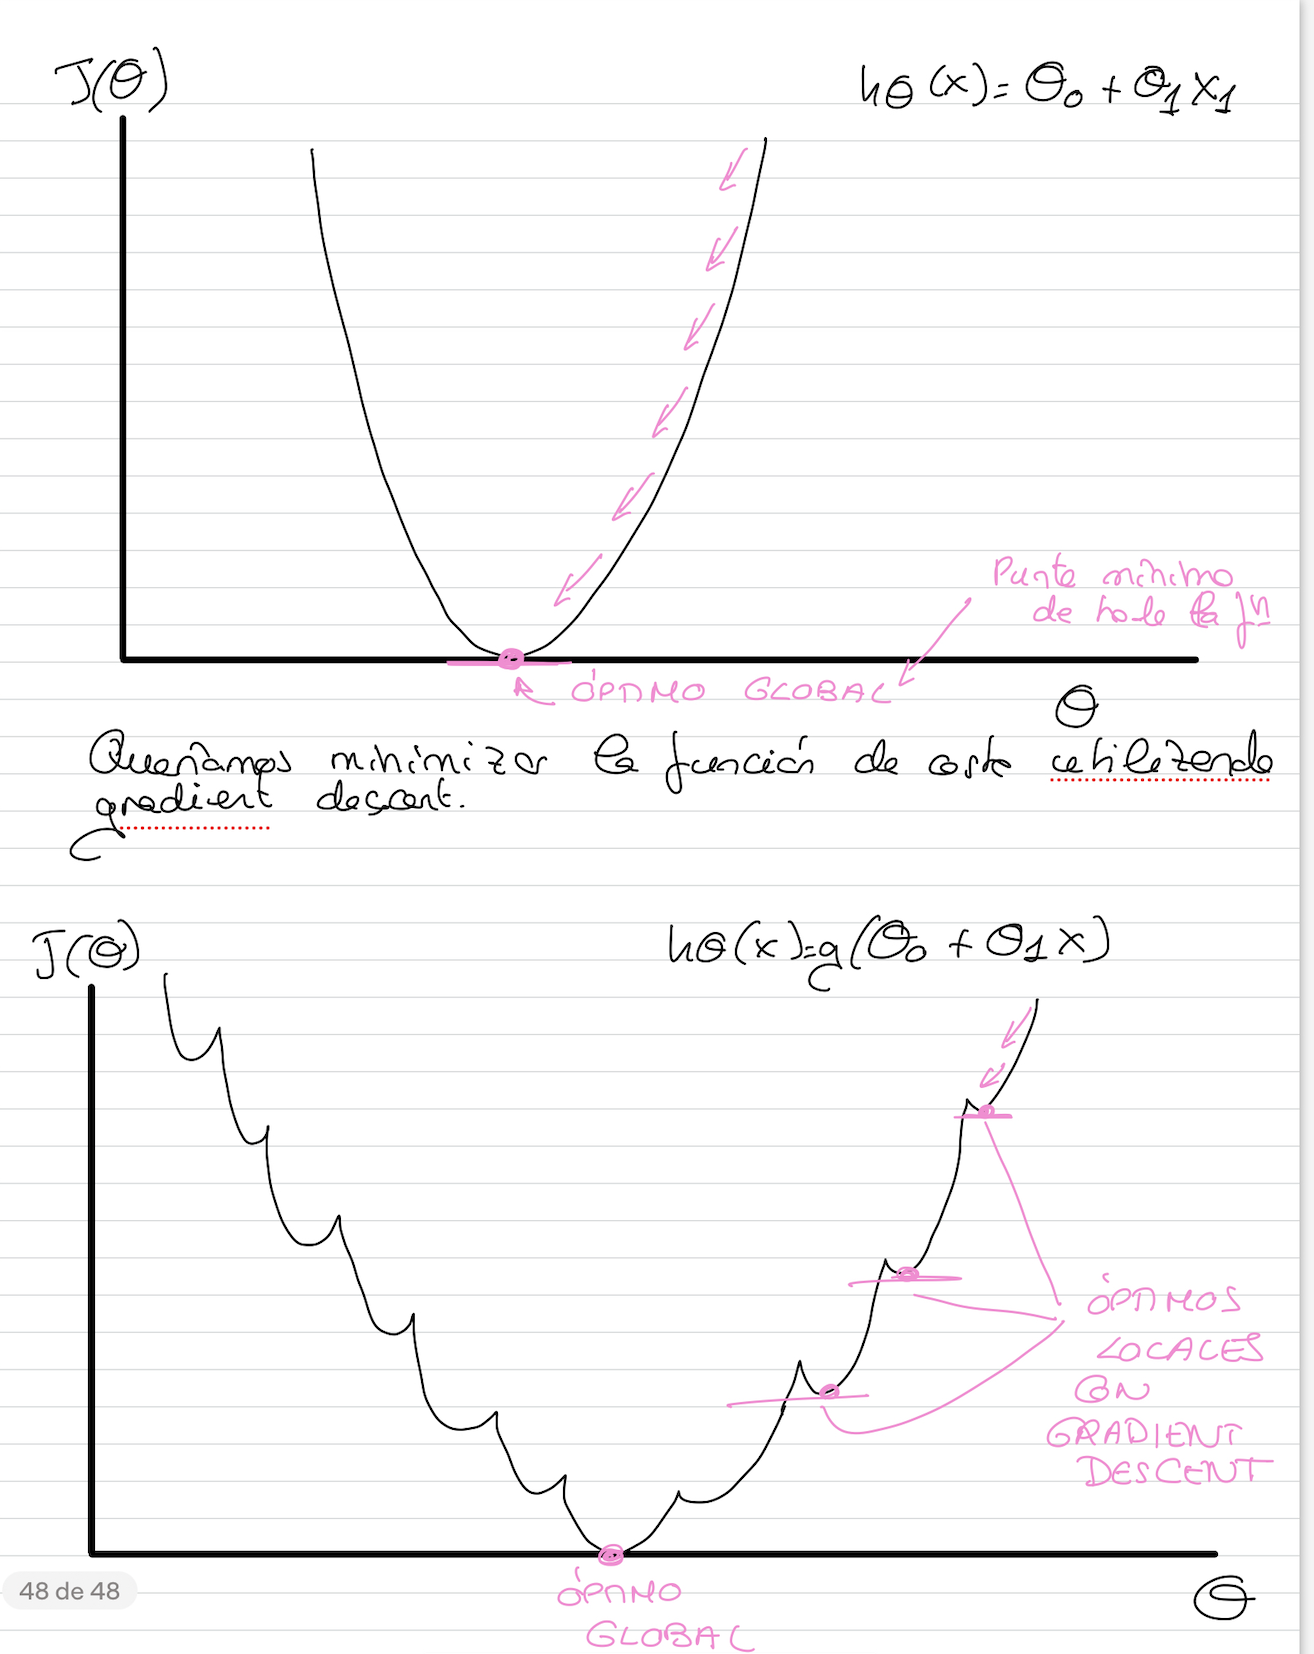 J(θ)
hθ(x)= θ₀ + θ₁x₁
Punto mínimo
de toda la fⁿ
ÓPTIMO GLOBAL
θ
Queríamos minimizar la función de coste utilizando
gradient descent.
J(θ)
hθ(x)=g(θ₀ + θ₁x)
ÓPTIMOS
LOCALES
CON
GRADIENT
DESCENT
48 de 48
ÓPTIMO
GLOBAL
θ